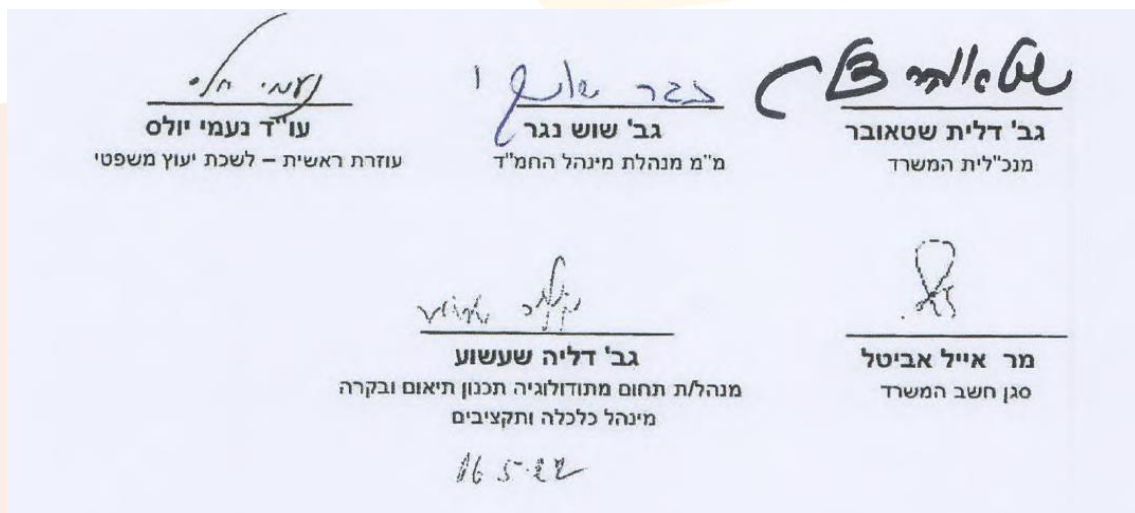 שטאובר דלית
גב' דלית שטאובר
מנכ"לית המשרד
נגר שוש
גב' שוש נגר
מ"מ מנהלת מינהל החמ"ד
נעמי
עו"ד נעמי יולס
עוזרת ראשית – לשכת יעוץ משפטי
מר אייל אביטל
סגן חשב המשרד
גב' דליה שעשוע
מנהל/ת תחום מתודולוגיה תכנון תיאום ובקרה
מינהל כלכלה ותקציבים
16.5.22